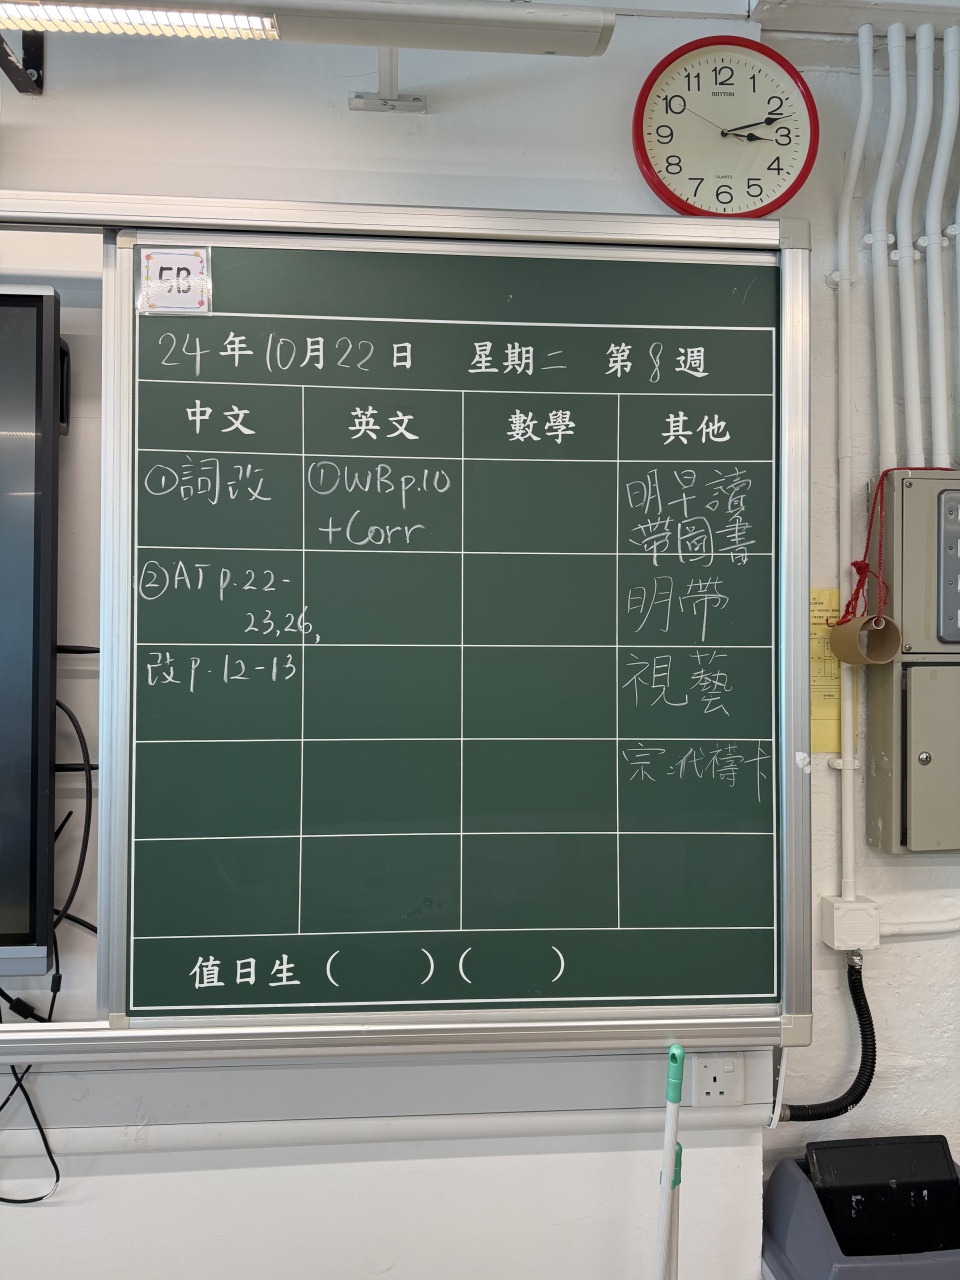 12
1
2
3
4
5
6
7
8
9
10
11
RHYTHM
QUARTZ
5B
24年10月22日 星期二 第8週
中文 英文 數學 其他
①詞改 ①WBp.10 明早讀
+Corr 帶圖書
②AT p.22- 明帶
23,26,
改p.12-13 視藝
宗:代禱卡
值日生( )( )